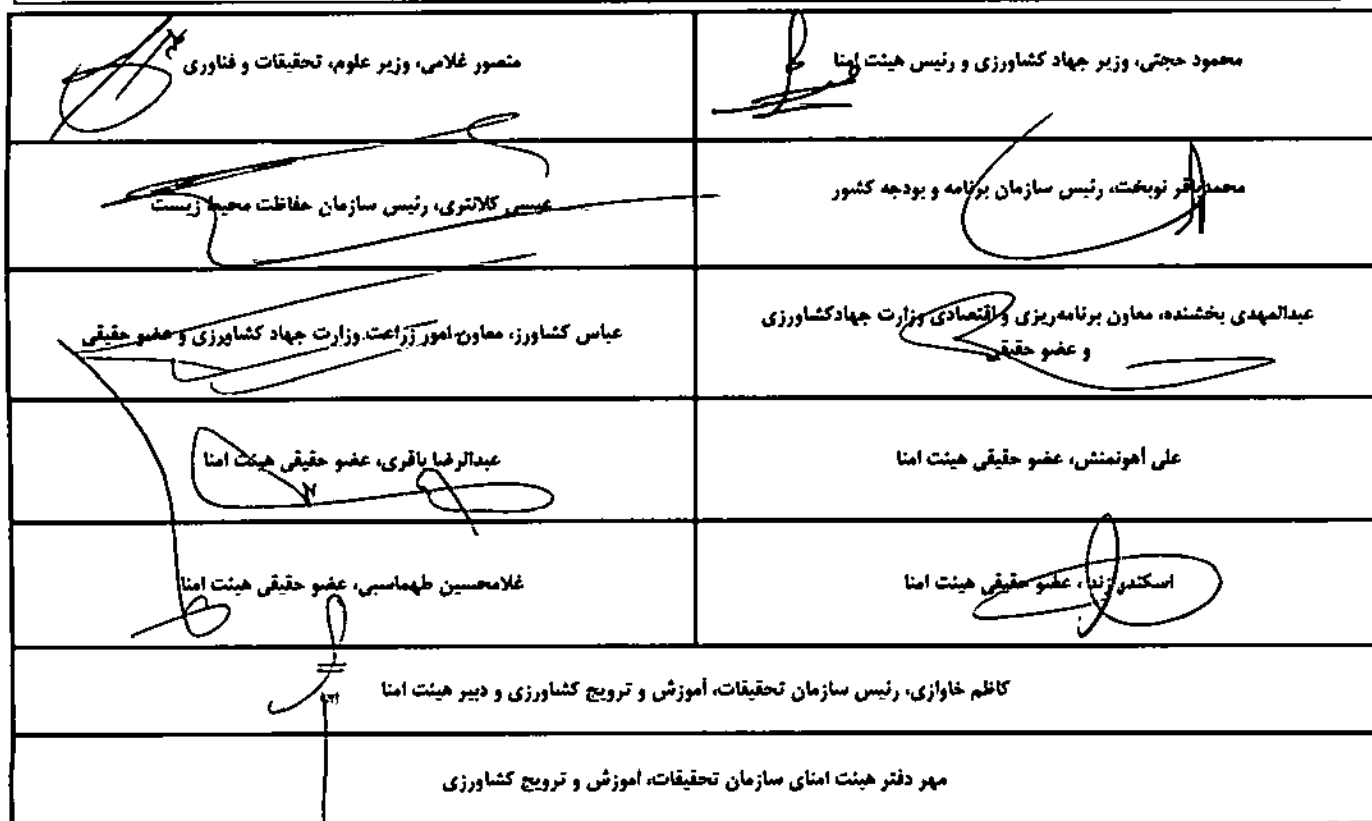 محمود حجتی، وزیر جهاد کشاورزی و رئیس هیئت امنا
منصور غلامی، وزیر علوم، تحقیقات و فناوری
محمدباقر نوبخت، رئیس سازمان برنامه و بودجه کشور
عیسی کلانتری، رئیس سازمان حفاظت محیط زیست
عبدالمهدی بخشنده، معاون برنامه‌ریزی و اقتصادی وزارت جهادکشاورزی
و عضو حقیقی
عباس کشاورز، معاون امور زراعت وزارت جهاد کشاورزی و عضو حقیقی
علی آهونمنش، عضو حقیقی هیئت امنا
عبدالرضا باقری، عضو حقیقی هیئت امنا
اسکندر زند، عضو حقیقی هیئت امنا
غلامحسین طهماسبی، عضو حقیقی هیئت امنا
کاظم خاوازی، رئیس سازمان تحقیقات، آموزش و ترویج کشاورزی و دبیر هیئت امنا
مهر دفتر هیئت امنای سازمان تحقیقات، آموزش و ترویج کشاورزی